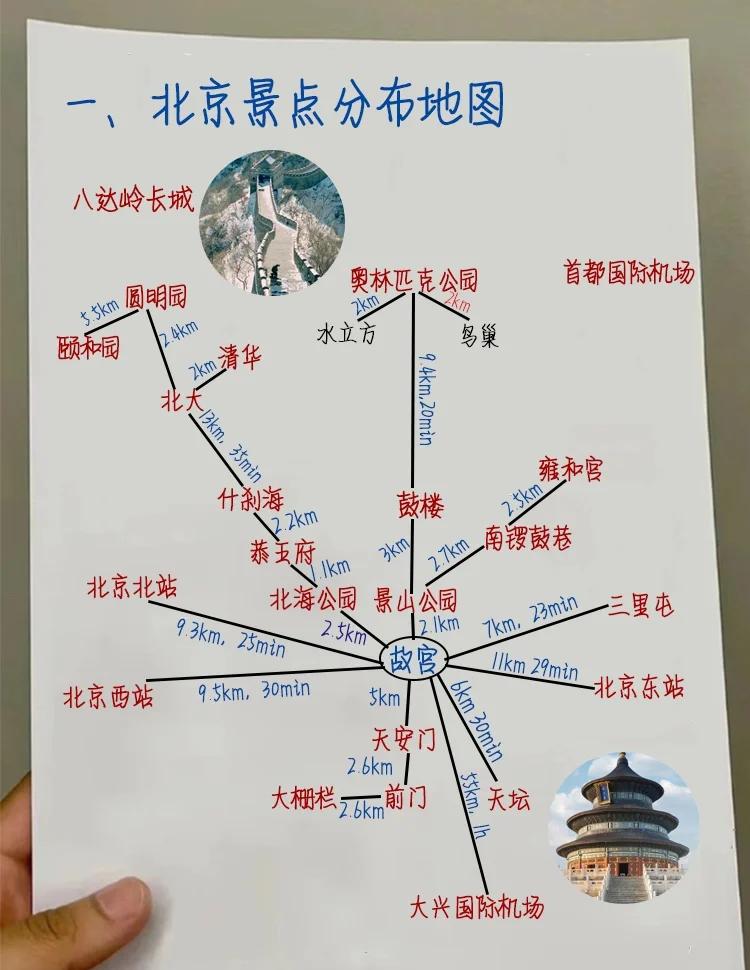 一、北京景点分布地图
八达岭长城
首都国际机场
奥林匹克公园
圆明园
5.5km
2km
2km
颐和园
2.4km
水立方
鸟巢
清华
2km
北大
9.4km,20min
13km, 35min
雍和宫
什刹海
鼓楼
2.5km
2.2km
南锣鼓巷
恭王府
3km
2.7km
1.1km
北京北站
北海公园
景山公园
三里屯
7km, 23min
9.3km, 25min
2.5km
2.1km
故宫
11km 29min
北京西站
9.5km, 30min
北京东站
5km
6km 30min
天安门
2.6km
大栅栏
2.6km
前门
天坛
55km, 1h
大兴国际机场